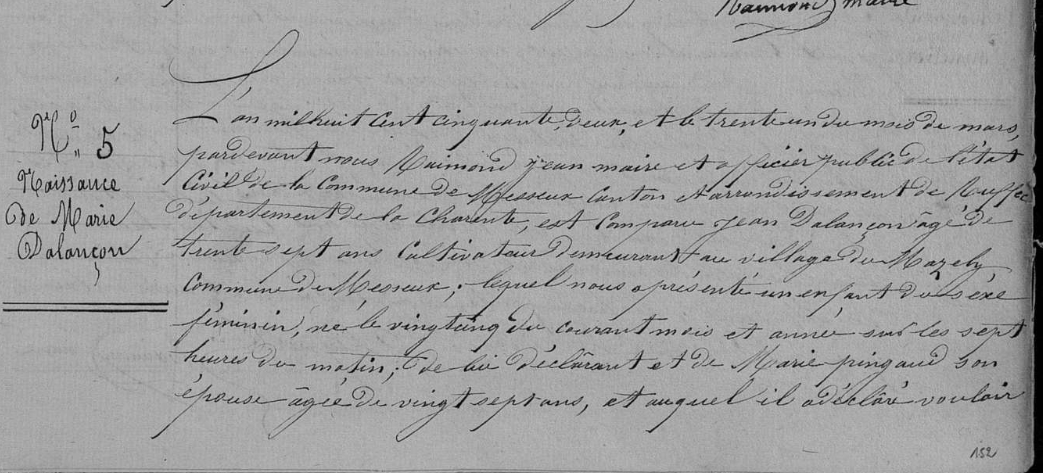 Raimond, maire
N.º 5
Naissance
de Marie
Dalançon
L'an mil huit cent cinquante, deux, et le trente un du mois de mars,
pardevant nous Raimond jean maire et officier public de l'état
Civil de la Commune de Messeux Canton et arrondissement de Ruffec
département de la Charente, est Comparu jean Dalançon âgé de
trente sept ans Cultivateur demeurant au village du Mazely,
Commune de Messeux; lequel nous a présenté un enfant du séxe
féminin, né le vingt cinq du courant mois et année sur les sept
heures du matin; de lui déclarant et de Marie pingaud son
épouse âgée de vingt sept ans, et auquel il a déclaré vouloir
152